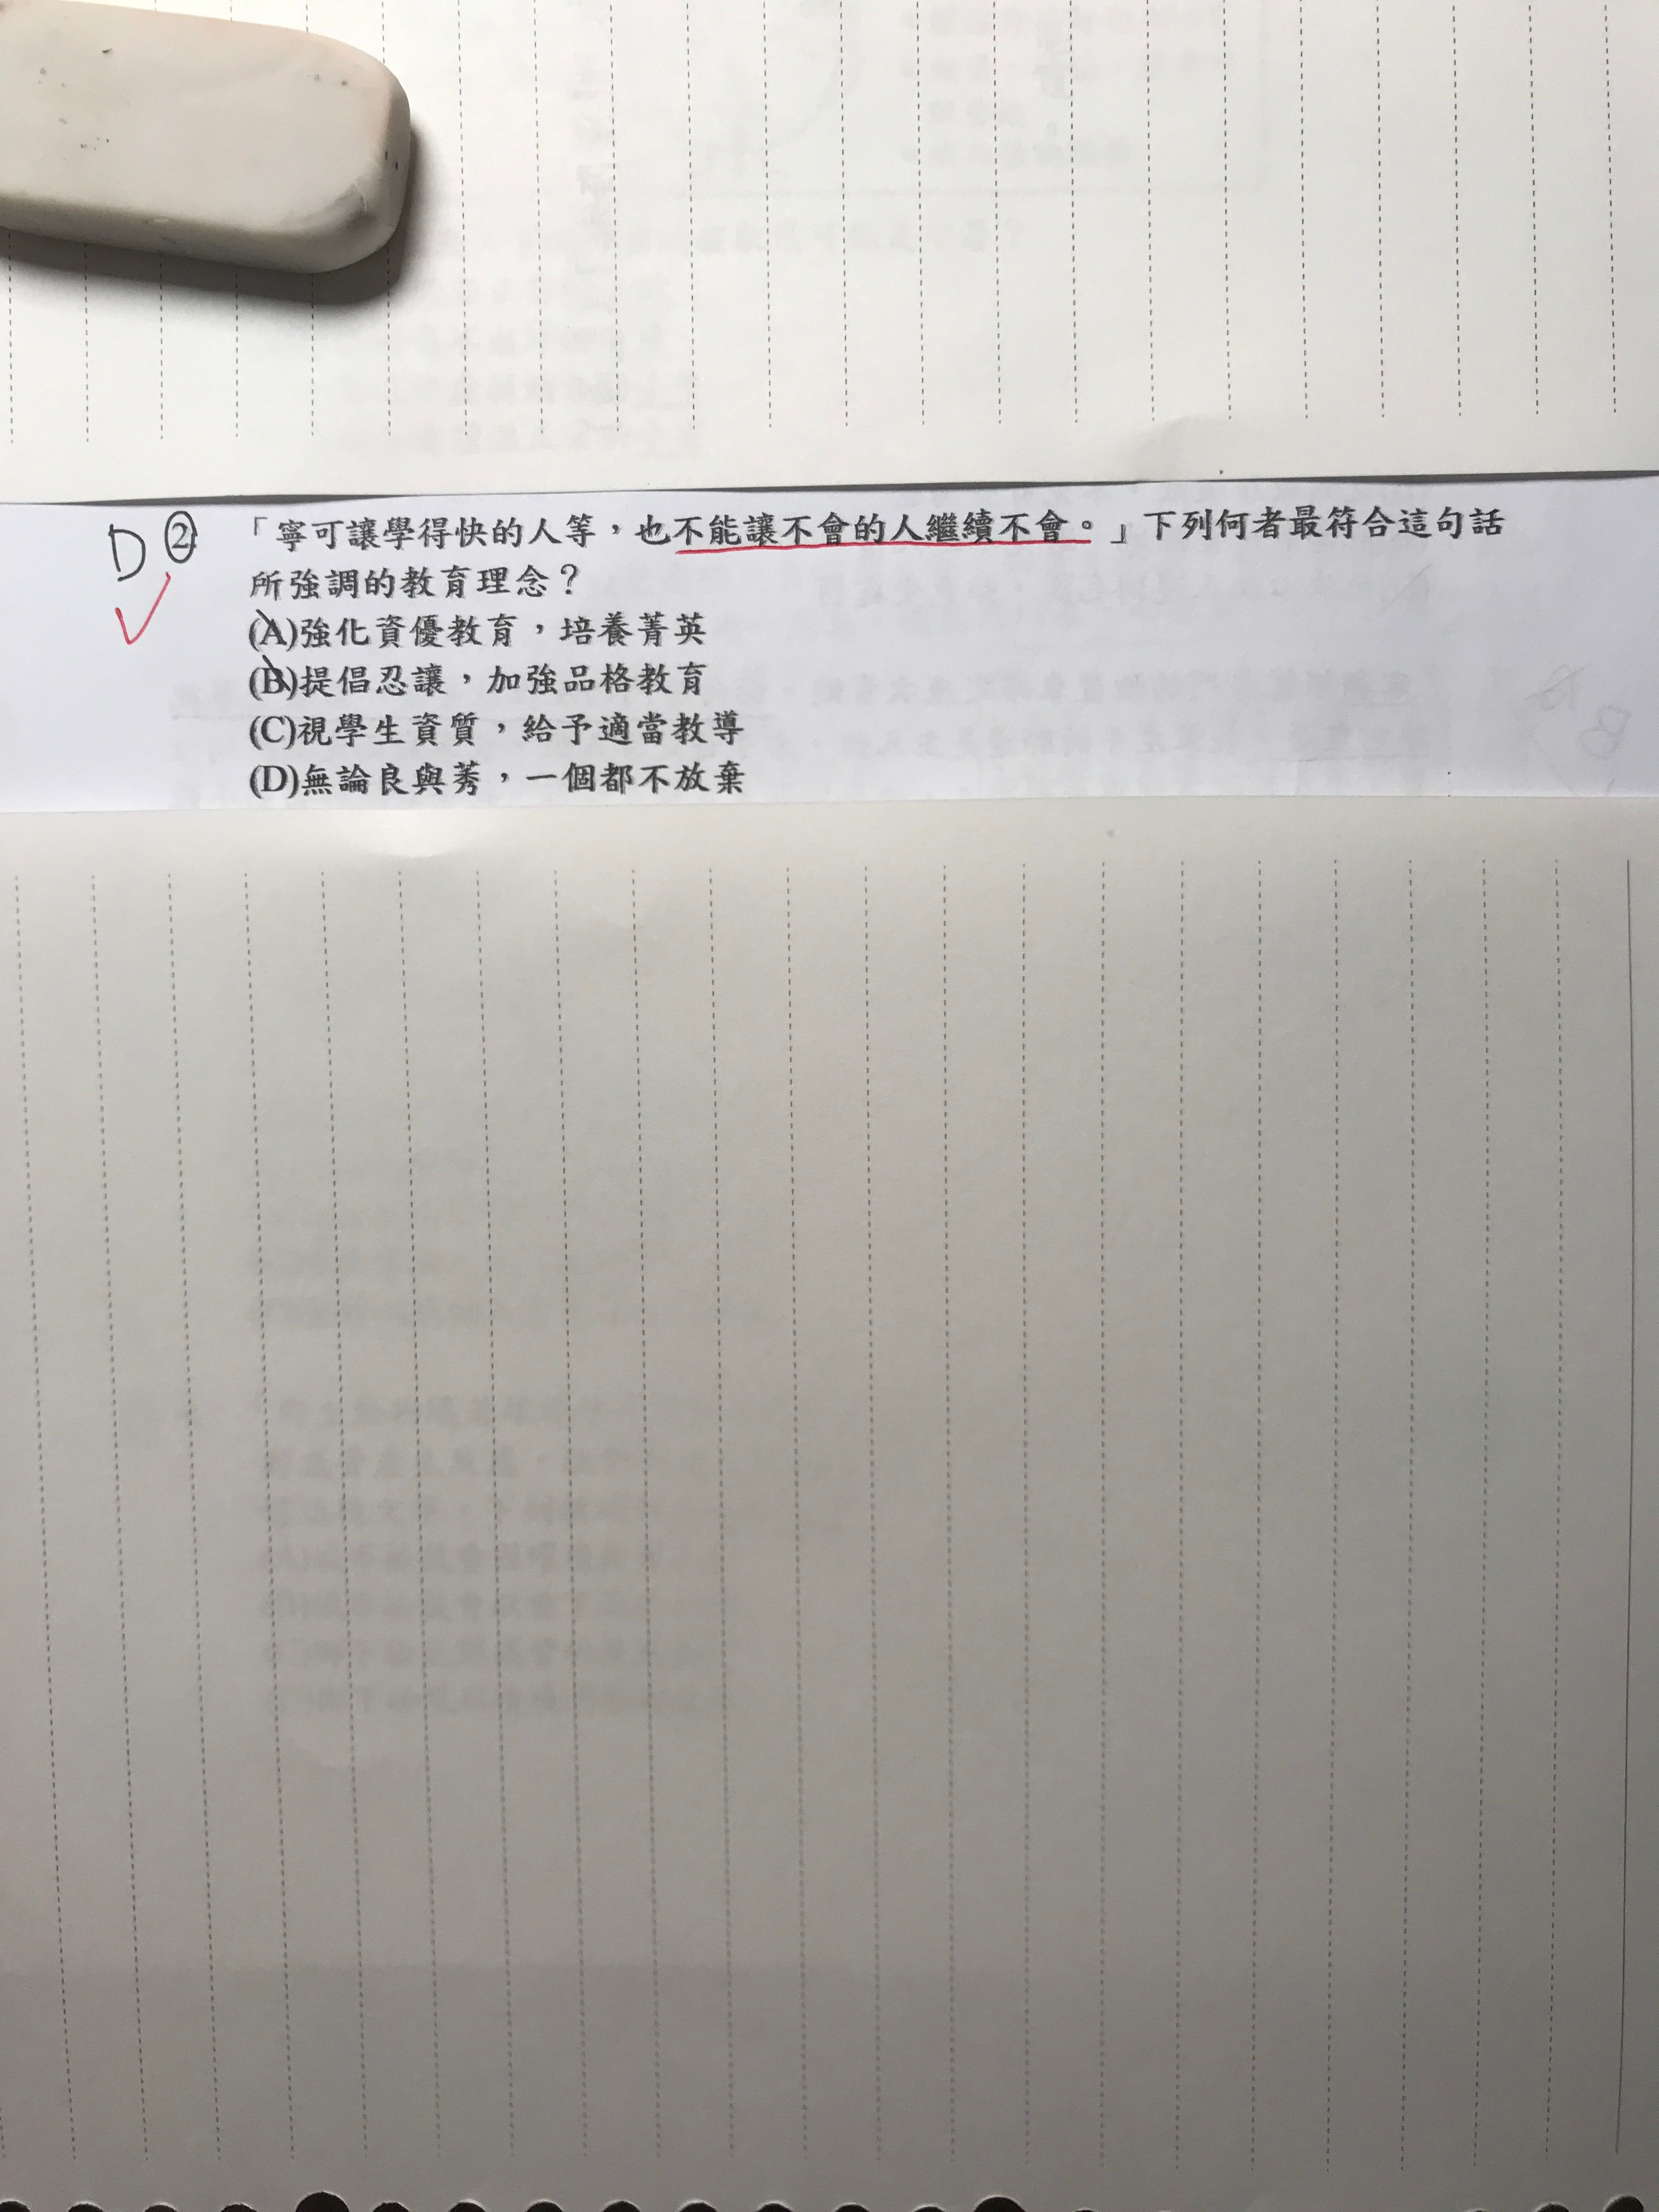 D ② 「寧可讓學得快的人等，也不能讓不會的人繼續不會。」下列何者最符合這句話
所強調的教育理念？
(A)強化資優教育，培養菁英
(B)提倡忍讓，加強品格教育
(C)視學生資質，給予適當教導
(D)無論良與莠，一個都不放棄